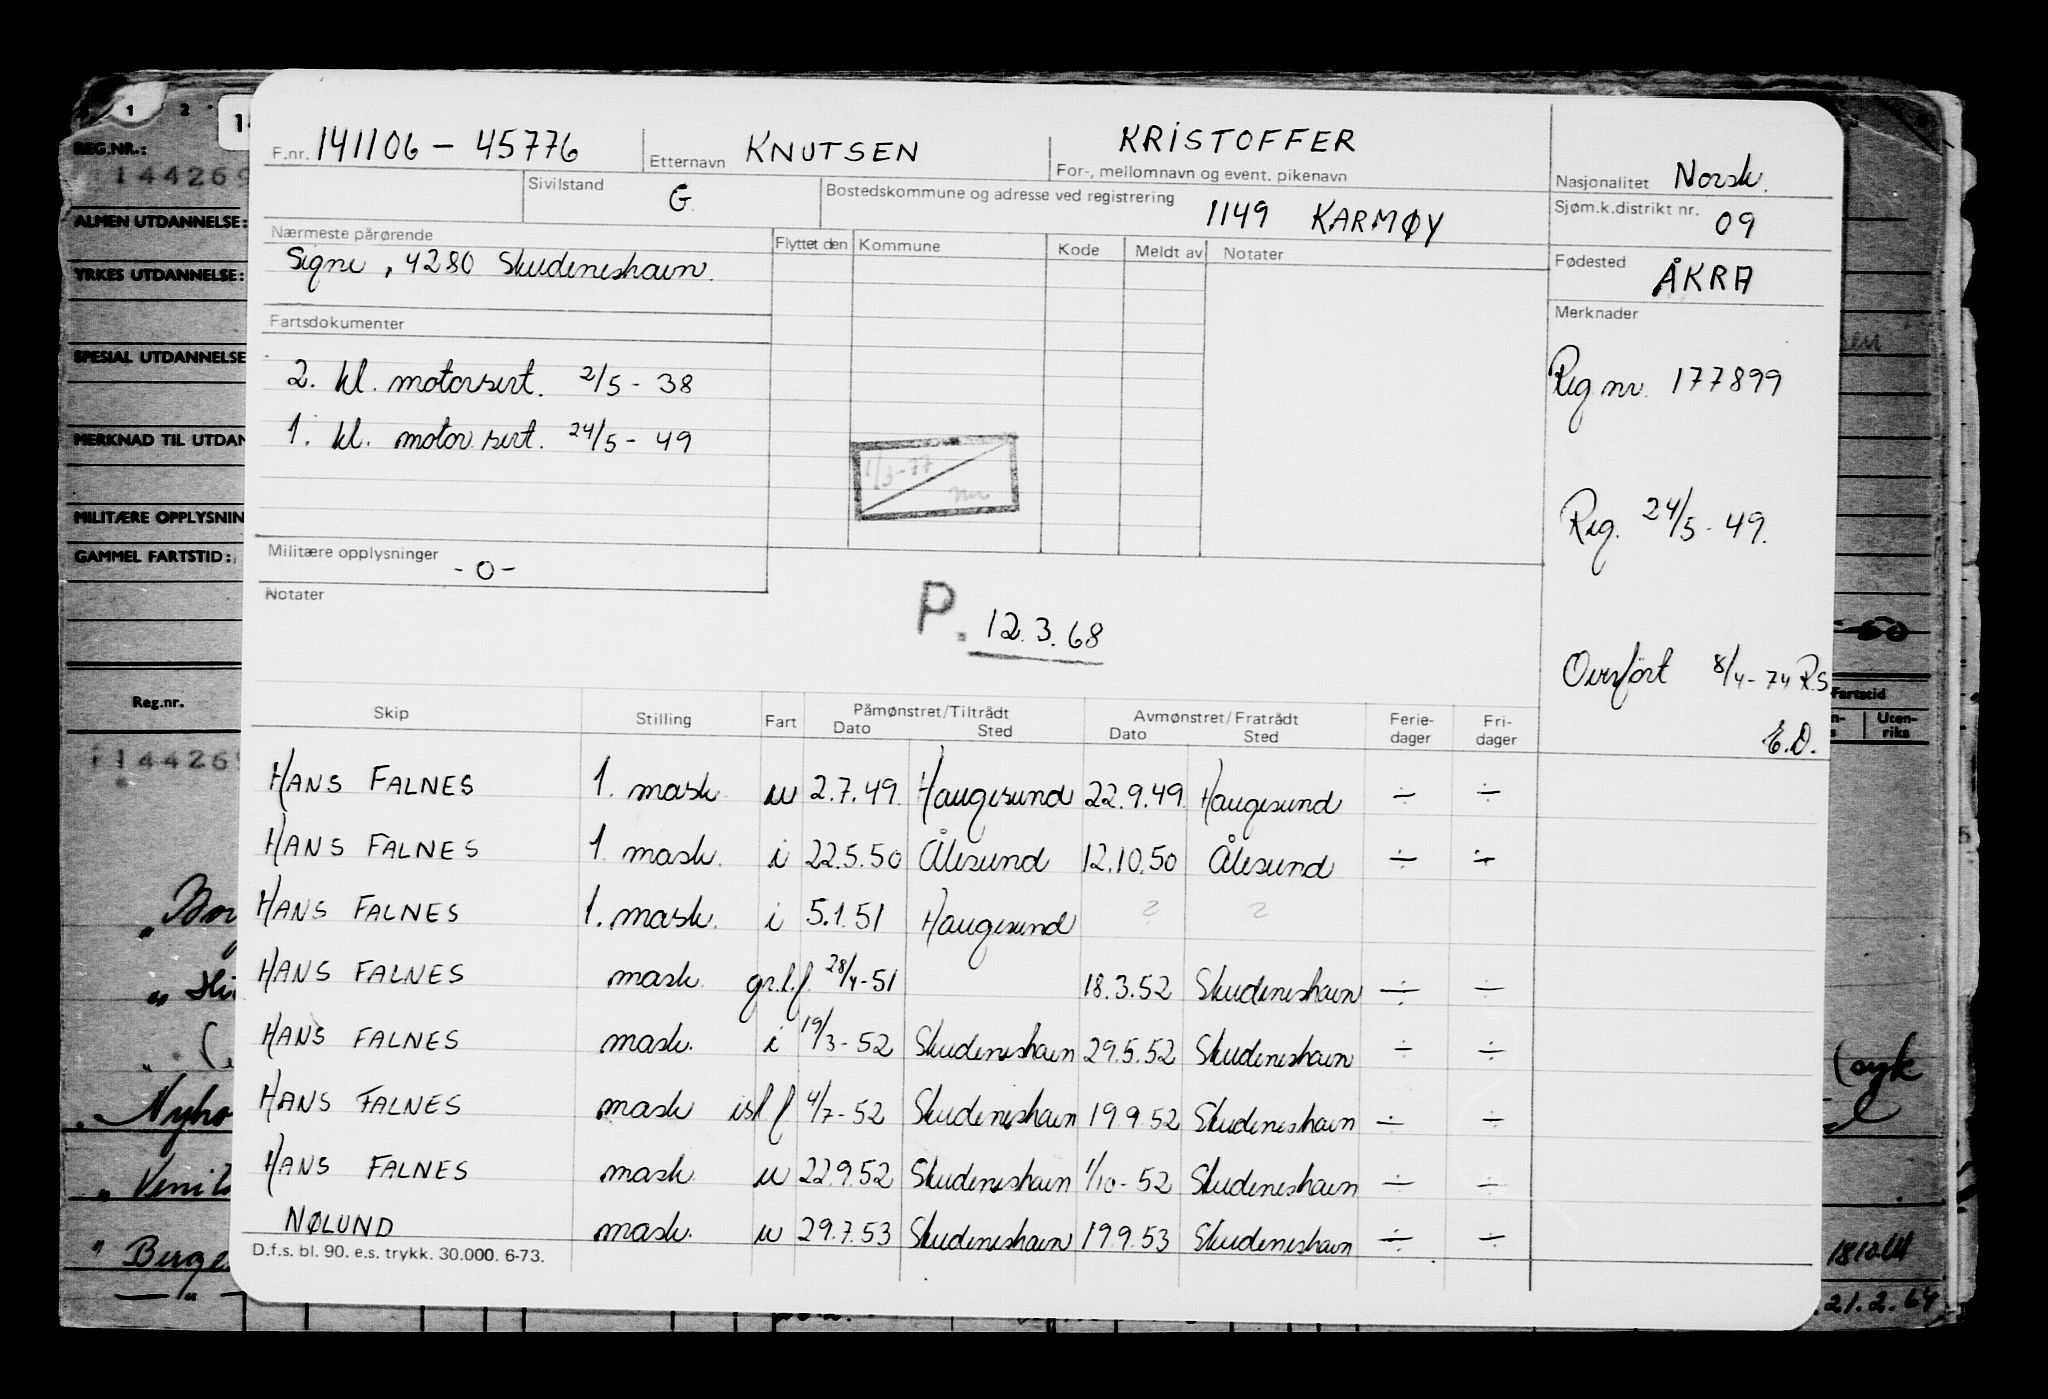 F.nr. 141106 - 45776 Etternavn KNUTSEN KRISTOFFER
For-, mellomnavn og event. pikenavn
Nasjonalitet Norsk.
Sivilstand G. Bostedskommune og adresse ved registrering
1149 KARMØY
Sjøm.k.distrikt nr. 09
Nærmeste pårørende
Signe, 4280 Skudeneshavn.
Flyttet den Kommune Kode Meldt av Notater
Fødested ÅKRA
Fartsdokumenter
2. kl. motorsert. 2/5 - 38
1. kl. motor sert. 24/5 - 49
1/3-77
Merknader
Reg nr. 177899
Reg. 24/5 - 49.
Overført 8/4 - 74 R.S
E.D.
Militære opplysninger - 0 -
Notater
P. 12.3.68
Skip Stilling Fart Påmønstret/Tiltrådt Dato Sted Avmønstret/Fratrådt Dato Sted Ferie-dager Fri-dager
HANS FALNES 1. mask u 2.7.49. Haugesund 22.9.49 Haugesund ÷ ÷
HANS FALNES 1. mask. i 22.5.50 Ålesund 12.10.50 Ålesund ÷ ÷
HANS FALNES 1. mask. i 5.1.51 Haugesund ? ?
HANS FALNES mask. gr.l.f. 28/4-51 18.3.52 Skudeneshavn ÷ ÷
HANS FALNES mask. i 19/3-52 Skudeneshavn 29.5.52 Skudeneshavn ÷ ÷
HANS FALNES mask isl f 4/7-52 Skudeneshavn 19.9.52 Skudeneshavn ÷ ÷
HANS FALNES mask u 22.9.52 Skudeneshavn 1/10-52 Skudeneshavn ÷ ÷
NØLUND mask. u 29.7.53 Skudeneshavn 19.9.53 Skudeneshavn ÷ ÷
D.f.s. bl. 90. e.s. trykk. 30.000. 6-73.
1 2
REG.NR.:
144269
ALMEN UTDANNELSE:
YRKES UTDANNELSE:
SPESIAL UTDANNELSE
MERKNAD TIL UTDAN
MILITÆRE OPPLYSNIN
GAMMEL FARTSTID:
Reg.nr.
144269
Fartstid
Uten-riks
(syk
21.2.64